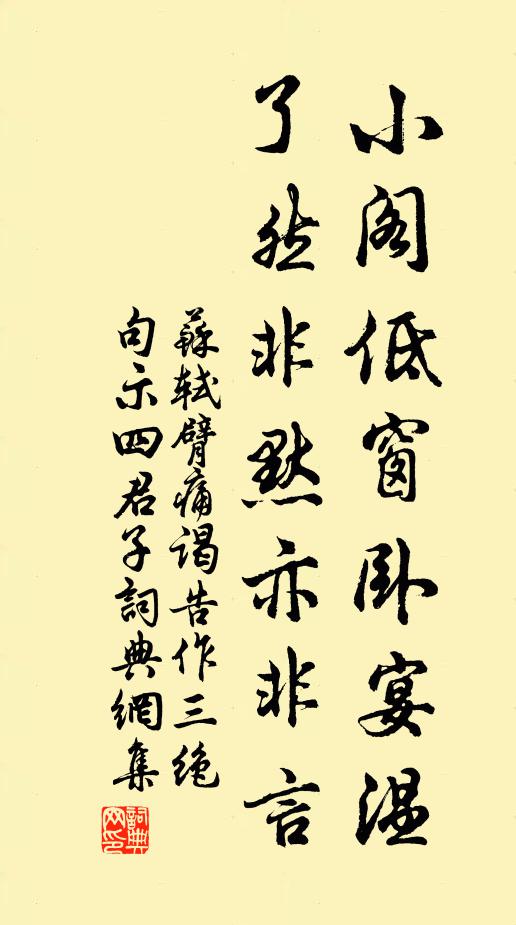 小阁低窗卧宴温
了然非默亦非言
蘇軾臂痛谒告作三绝
句示四君子詞典網集
詞典
网印